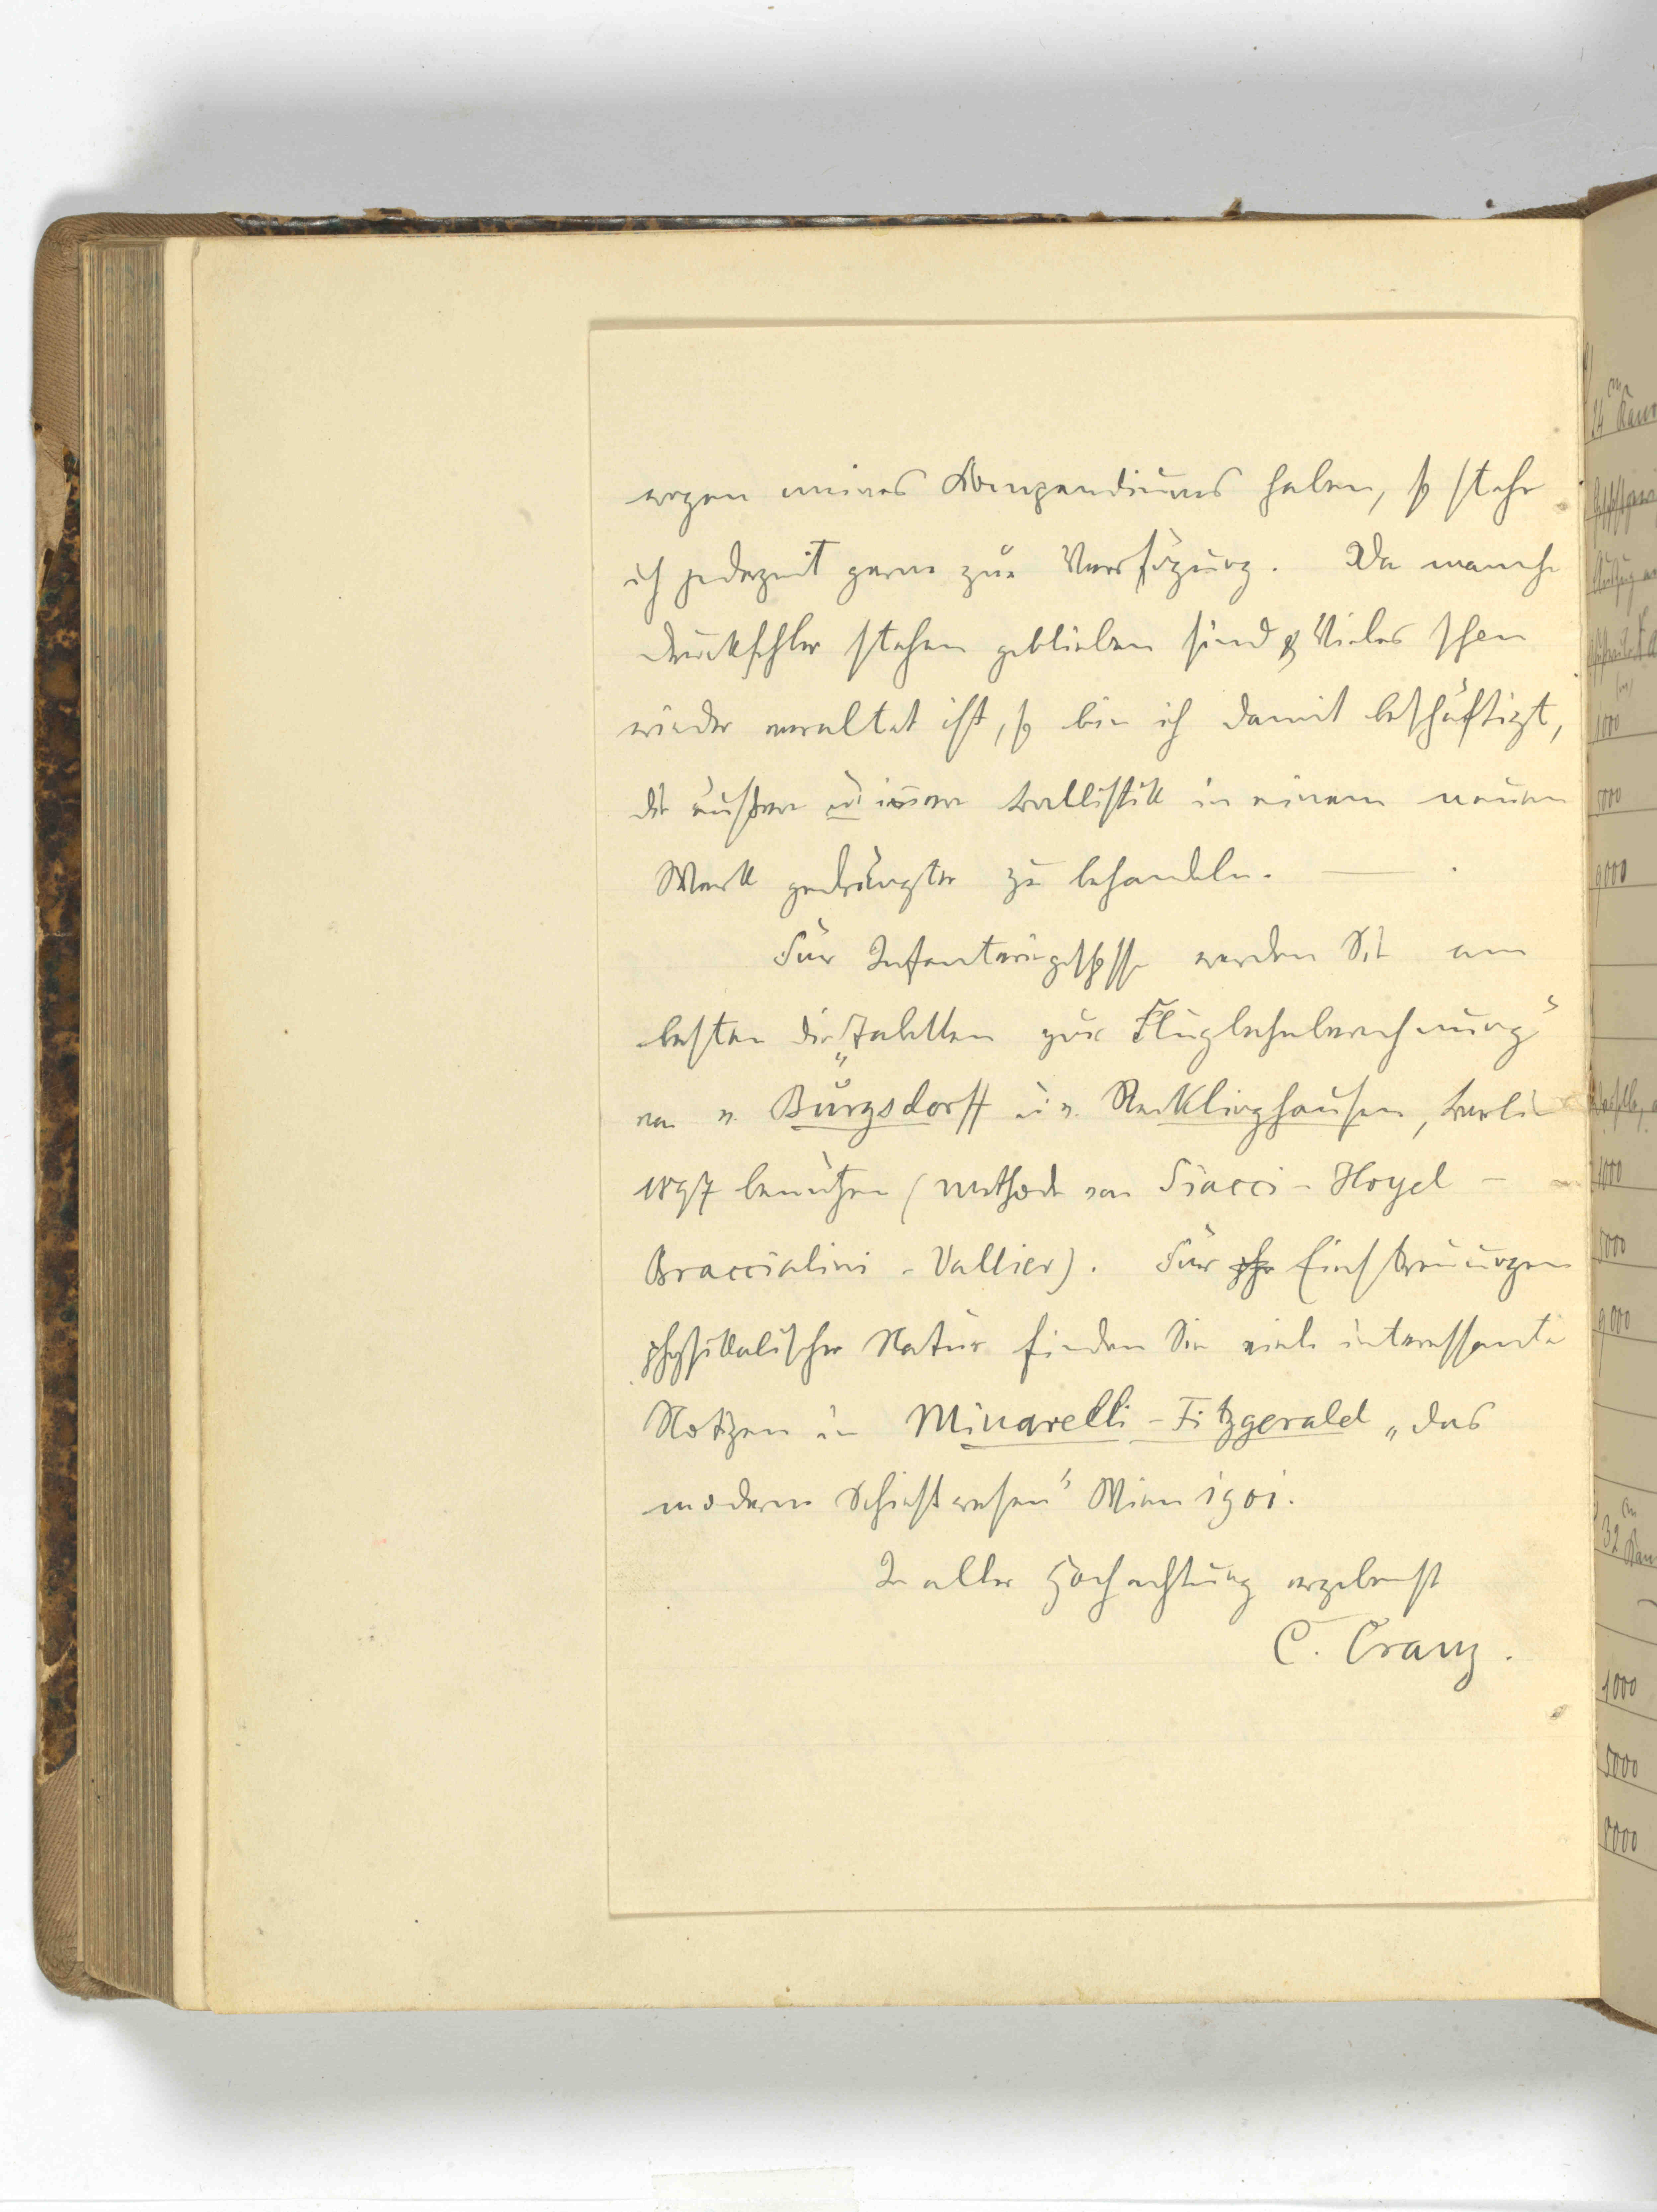 wegen meines Kompendiums haben, so stehe
ich jederzeit gerne zur Verfügung. Da manche
Druckfehler stehen geblieben sind & Vieles schon
wieder veraltet ist, so bin ich damit beschäftigt,
die äußere u. innere Ballistik in einem neuen
Werk gedrängter zu behandeln. —
Für Infanteriegeschosse werden Sie am
besten die „Tabellen zur Flugbahnberechnung"
von v. Burgsdorff u. v. Recklinghausen, Berlin
1897 benützen (Methode von Siacci - Hoyel -
Braccialini - Vallier). Für
physikalischer Natur finden Sie viele interessante
Notizen in Minarelli - Fitzgerald „das
moderne Schießwesen" Wien 1901.
In aller Hochachtung ergebenst
C. Cranz.
1000
5000
9000
1000
5000
9000
1000
5000